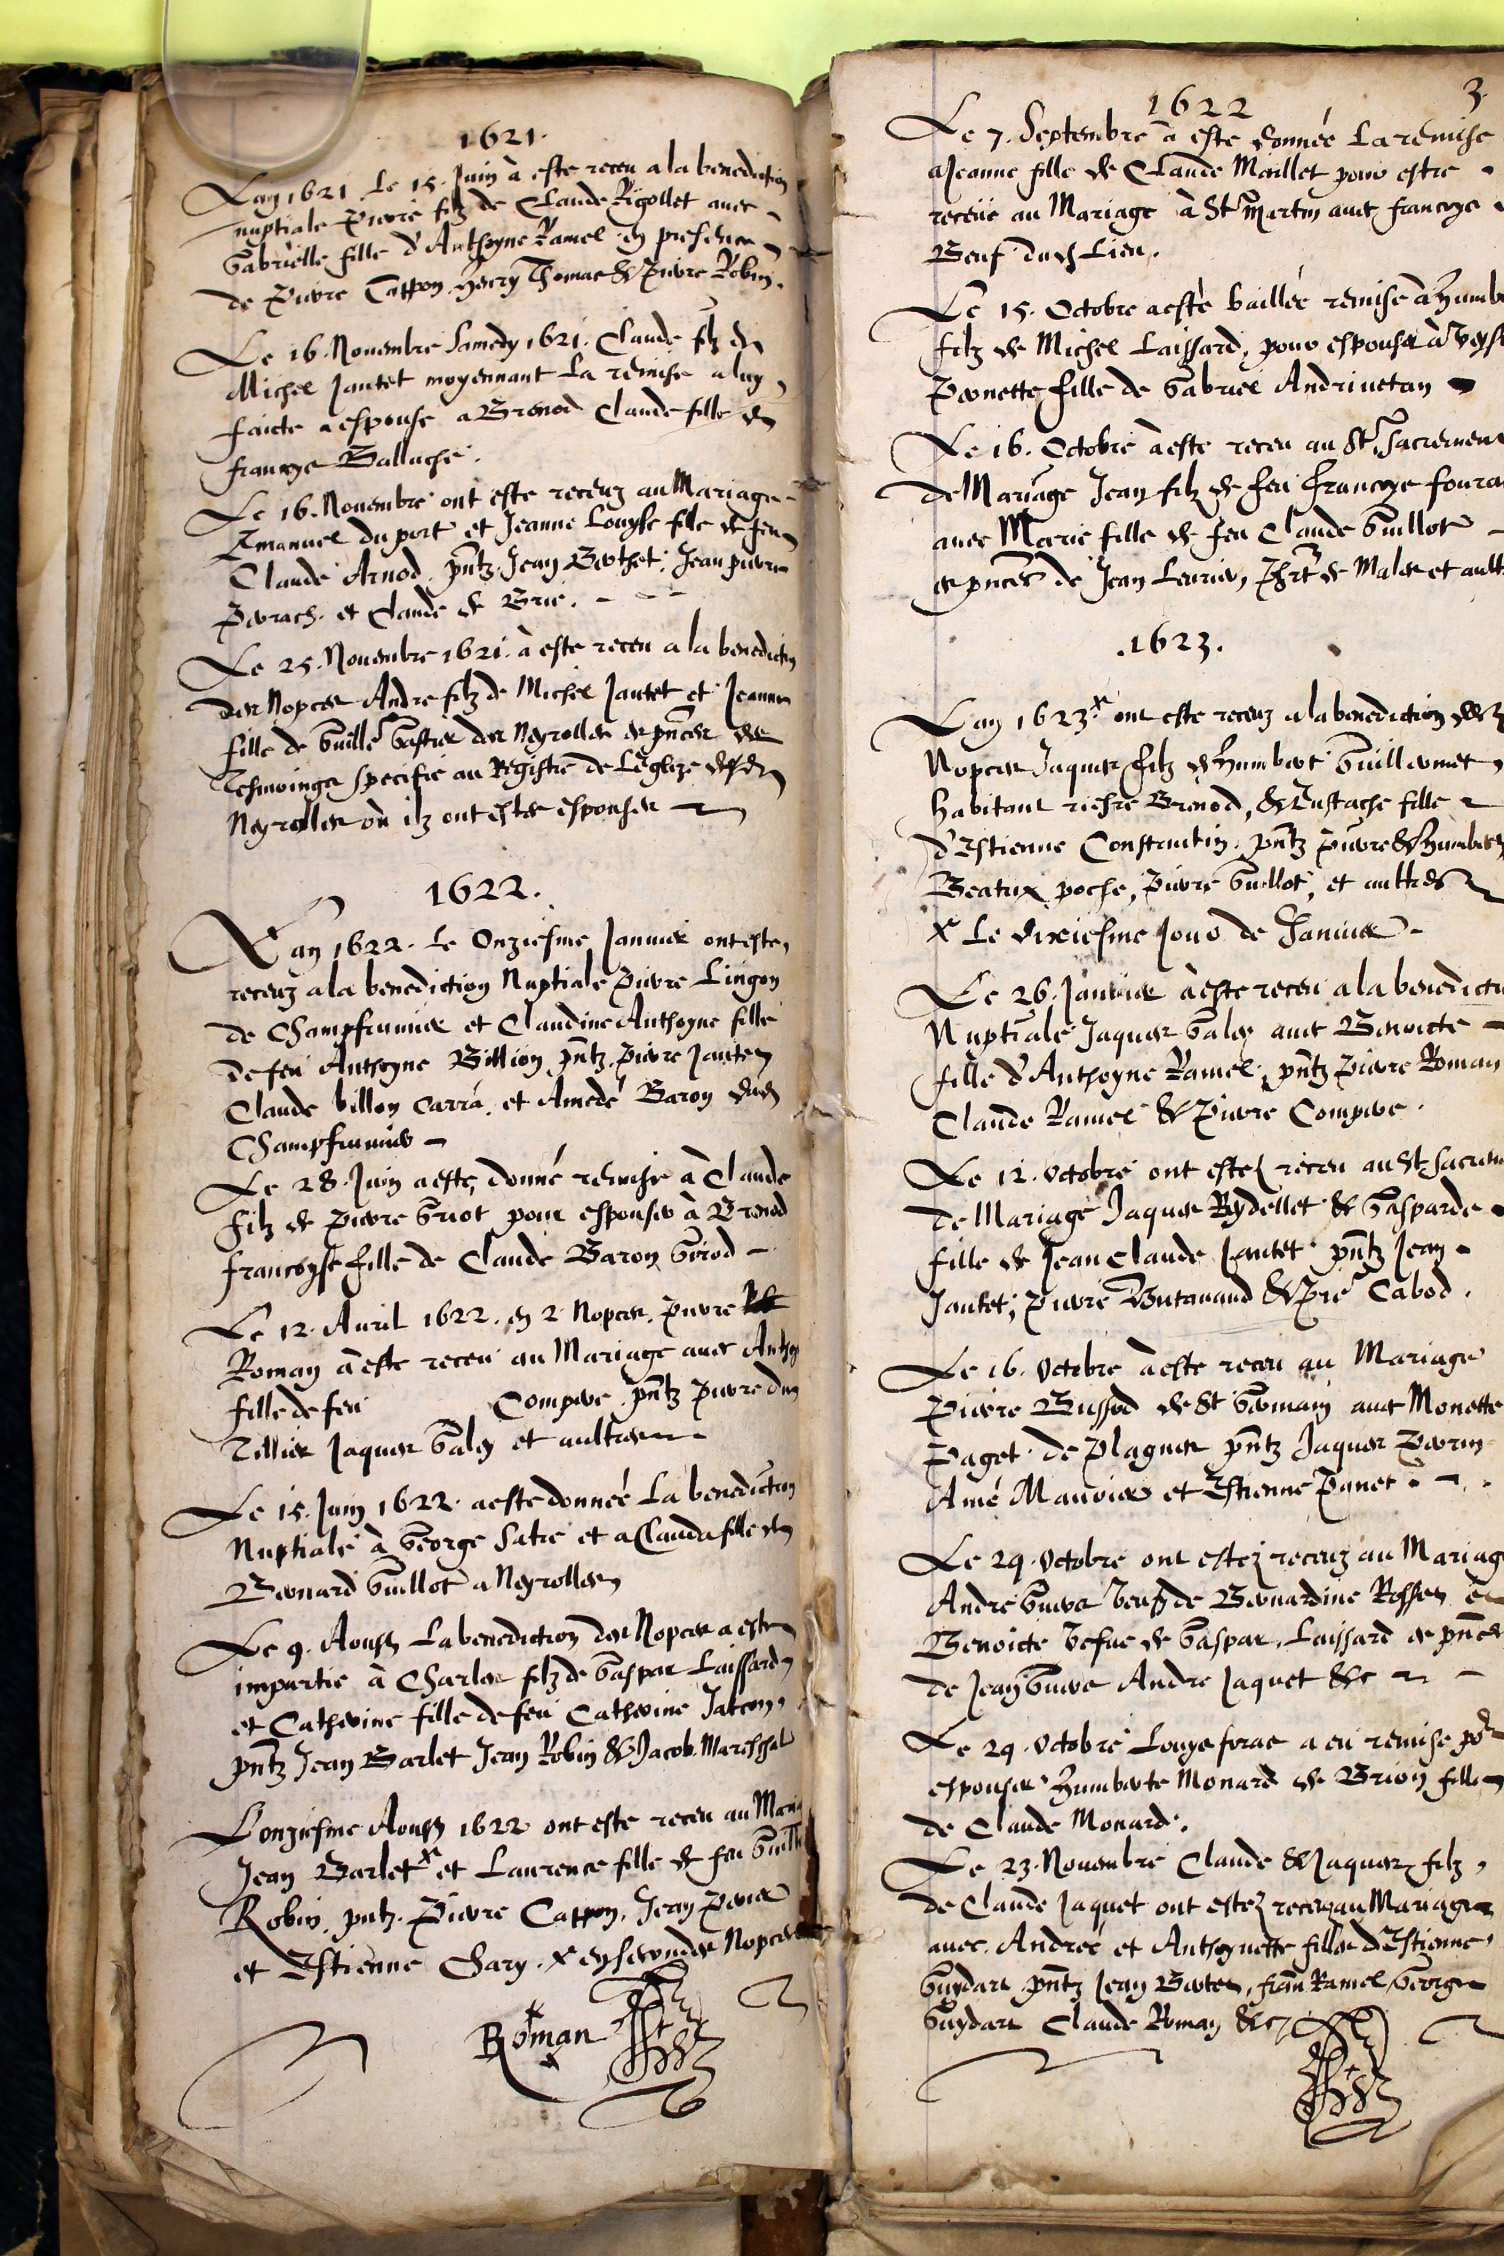 1621.
Lan 1621 Le 15. Juin à este receu a la benediction
nuptiale Pierre filz de Claude Rigollet avec
Gabrielle fille d'Anthoyne Ramel en presence
de Pierre Cappon Henry Thomas & Pierre Robin.
Le 16. Novembre Samedy 1621. Claude filz de
Michel Jantet moyennant La remise a luy
faicte a espouse a Brenod Claude fille de
francoys Balluche.
Le 16. Novembre ont este receuz au Mariage
Emanuel du port et Jeanne Louyse fille de feu
Claude Arnod. pntz. Jean Berthet, Jean pierre
Perrach. et Claude de Brie.
Le 25. Novembre 1621. à este receu a la benediction
des Nopces Andre filz de Michel Jantet et Jeanne
fille de Guille Gastier des Neyrolles es pnces des
Tesmoings specifié au Registre de Leglize desd
Neyrolles où ilz ont estes espouses
1622.
Lan 1622. Le Onziesme Janvier ont este
receuz a la benediction Nuptiale Pierre Lingon
de Champfromier et Claudine Anthoyne fille
de feu Anthoyne Billion pntz. Pierre Jantet
Claude billon Carra. et Amedé Baron dud
Champfromier
Le 28. Juin a este donné remise à Claude
filz de Pierre Griot pour espouser à Brenod
francoyse fille de Claude Baron Girod
Le 12. Avril 1622. en 2 Nopces. Pierre
Roman à este receu au Mariage avec Antho
fille de feu Compere. pntz Pierre du
Tillier Jaques Galey et aultres
Le 15. Juin 1622. a este donnée La benediction
Nuptiale à George Satre et a Clauda fille de
Bernard Guillot a Neyrolles
Le 9. Aoust La benediction des Nopces a este
impartie à Charles filz de Gaspar Laissard
et Catherine fille de feu Catherine Jatcom
pntz Jean Barlet Jean Robin & Jacob. Mareschal
Lonziesme Aoust 1622 ont este receu au Maria
Jean Barlet x et Laurence fille de feu Guill
Robin. pntz. Pierre Cappon, Jean Perier
et Estienne Gary. x en secondes Nopces
Roman
1622
3.
Le 7. Septembre à este donnée La remise
a Jeanne fille de Claude Maillet pour estre
receüe au Mariage à St Martin avec francoys
Beuf dud Lieu.
Le 15. Octobre a esté baillée remise à Humb
filz de Michel Laissard, pour espouser à Veys
Pernette fille de Gabriel Andrivetan
Le 16. Octobre à este receu au St Sacrement
de Mariage Jean filz de feu francoys foura
avec Marie fille de feu Claude Guillot
es pnces de Jean Levrier, Phrt de Males et ault
.1623.
Lan 1623.x ont este receuz a la benediction des
Nopces Jaques filz d'Humbert Guillermet
habitant riesre Brenod, & Eustache fille
d'Estienne Constantin. pntz Pierre & Humbert
Beatrix poche, Pierre Guillot, et aultres
x Le dixiesme Jour de Janvier
Le 26. Janvier à este receu a la benedicti
Nuptiale Jaques Galey avec Benoicte
fille d'Anthoyne Ramel. pntz Pierre Roman
Claude Ramel & Pierre Compere.
Le 12. Octobre ont estez receu au St Sacrem
de Mariage Jaques Rydellet & Gasparde
fille de Jean Claude Jantet pntz Jean
Jantet, Pierre Butavand & Pre Cabod.
Le 16. Octobre à este receu au Mariage
Pierre Bussod de St Germain avec Monette
Paget de Plagnes pntz Jaques Perrin
Amé Mauvier et Estienne Panet.
Le 29. Octobre ont estez receuz au Mariag
Andre Guerre veuf de Bernardine Rosset et
Benoicte vefve de Gaspar. Laissard es pnces
de Jean Guerre Andre Jaquet &c
Le 29. Octobre Louys foras a eu remise pr
espouser Humberte Monard de Brion fille
de Claude Monard.
Le 23. Novembre Claude & Jaques filz
de Claude Jaquet ont estez receuz au Mariage
avec. Andreé et Anthoynette filles d'Estienne
Guydart pntz Jean Bertet, fran Ramel, George
Guydart Claude Roman &c